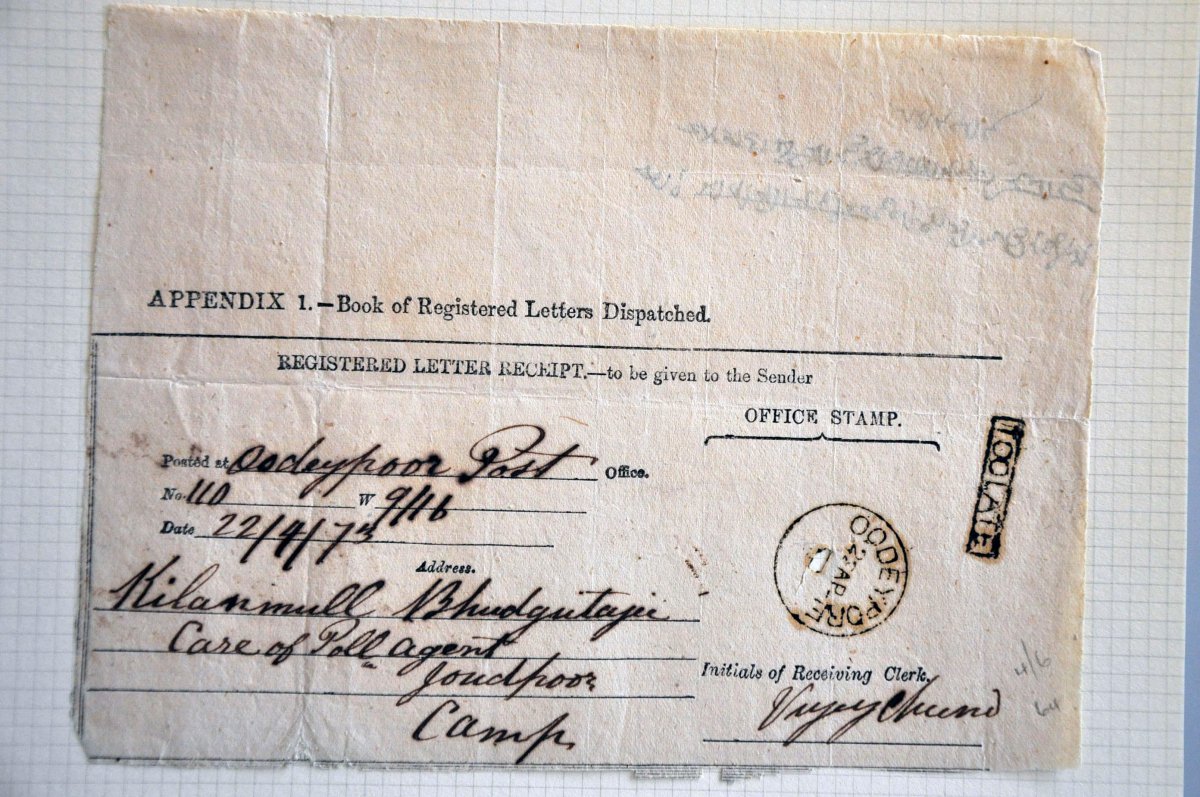 APPENDIX 1.—Book of Registered Letters Dispatched.
REGISTERED LETTER RECEIPT.—to be given to the Sender
OFFICE STAMP.
Posted at Oodeypoor Post Office.
No. 110 W 9/16
Date 22/4/73
Address.
Kilanmull Bhudgutajee
Care of Poll agent
Joudpoor
Camp
TOO LATE
OODEYPORE
22 AP
Initials of Receiving Clerk.
Vujey Chund
4/6
64